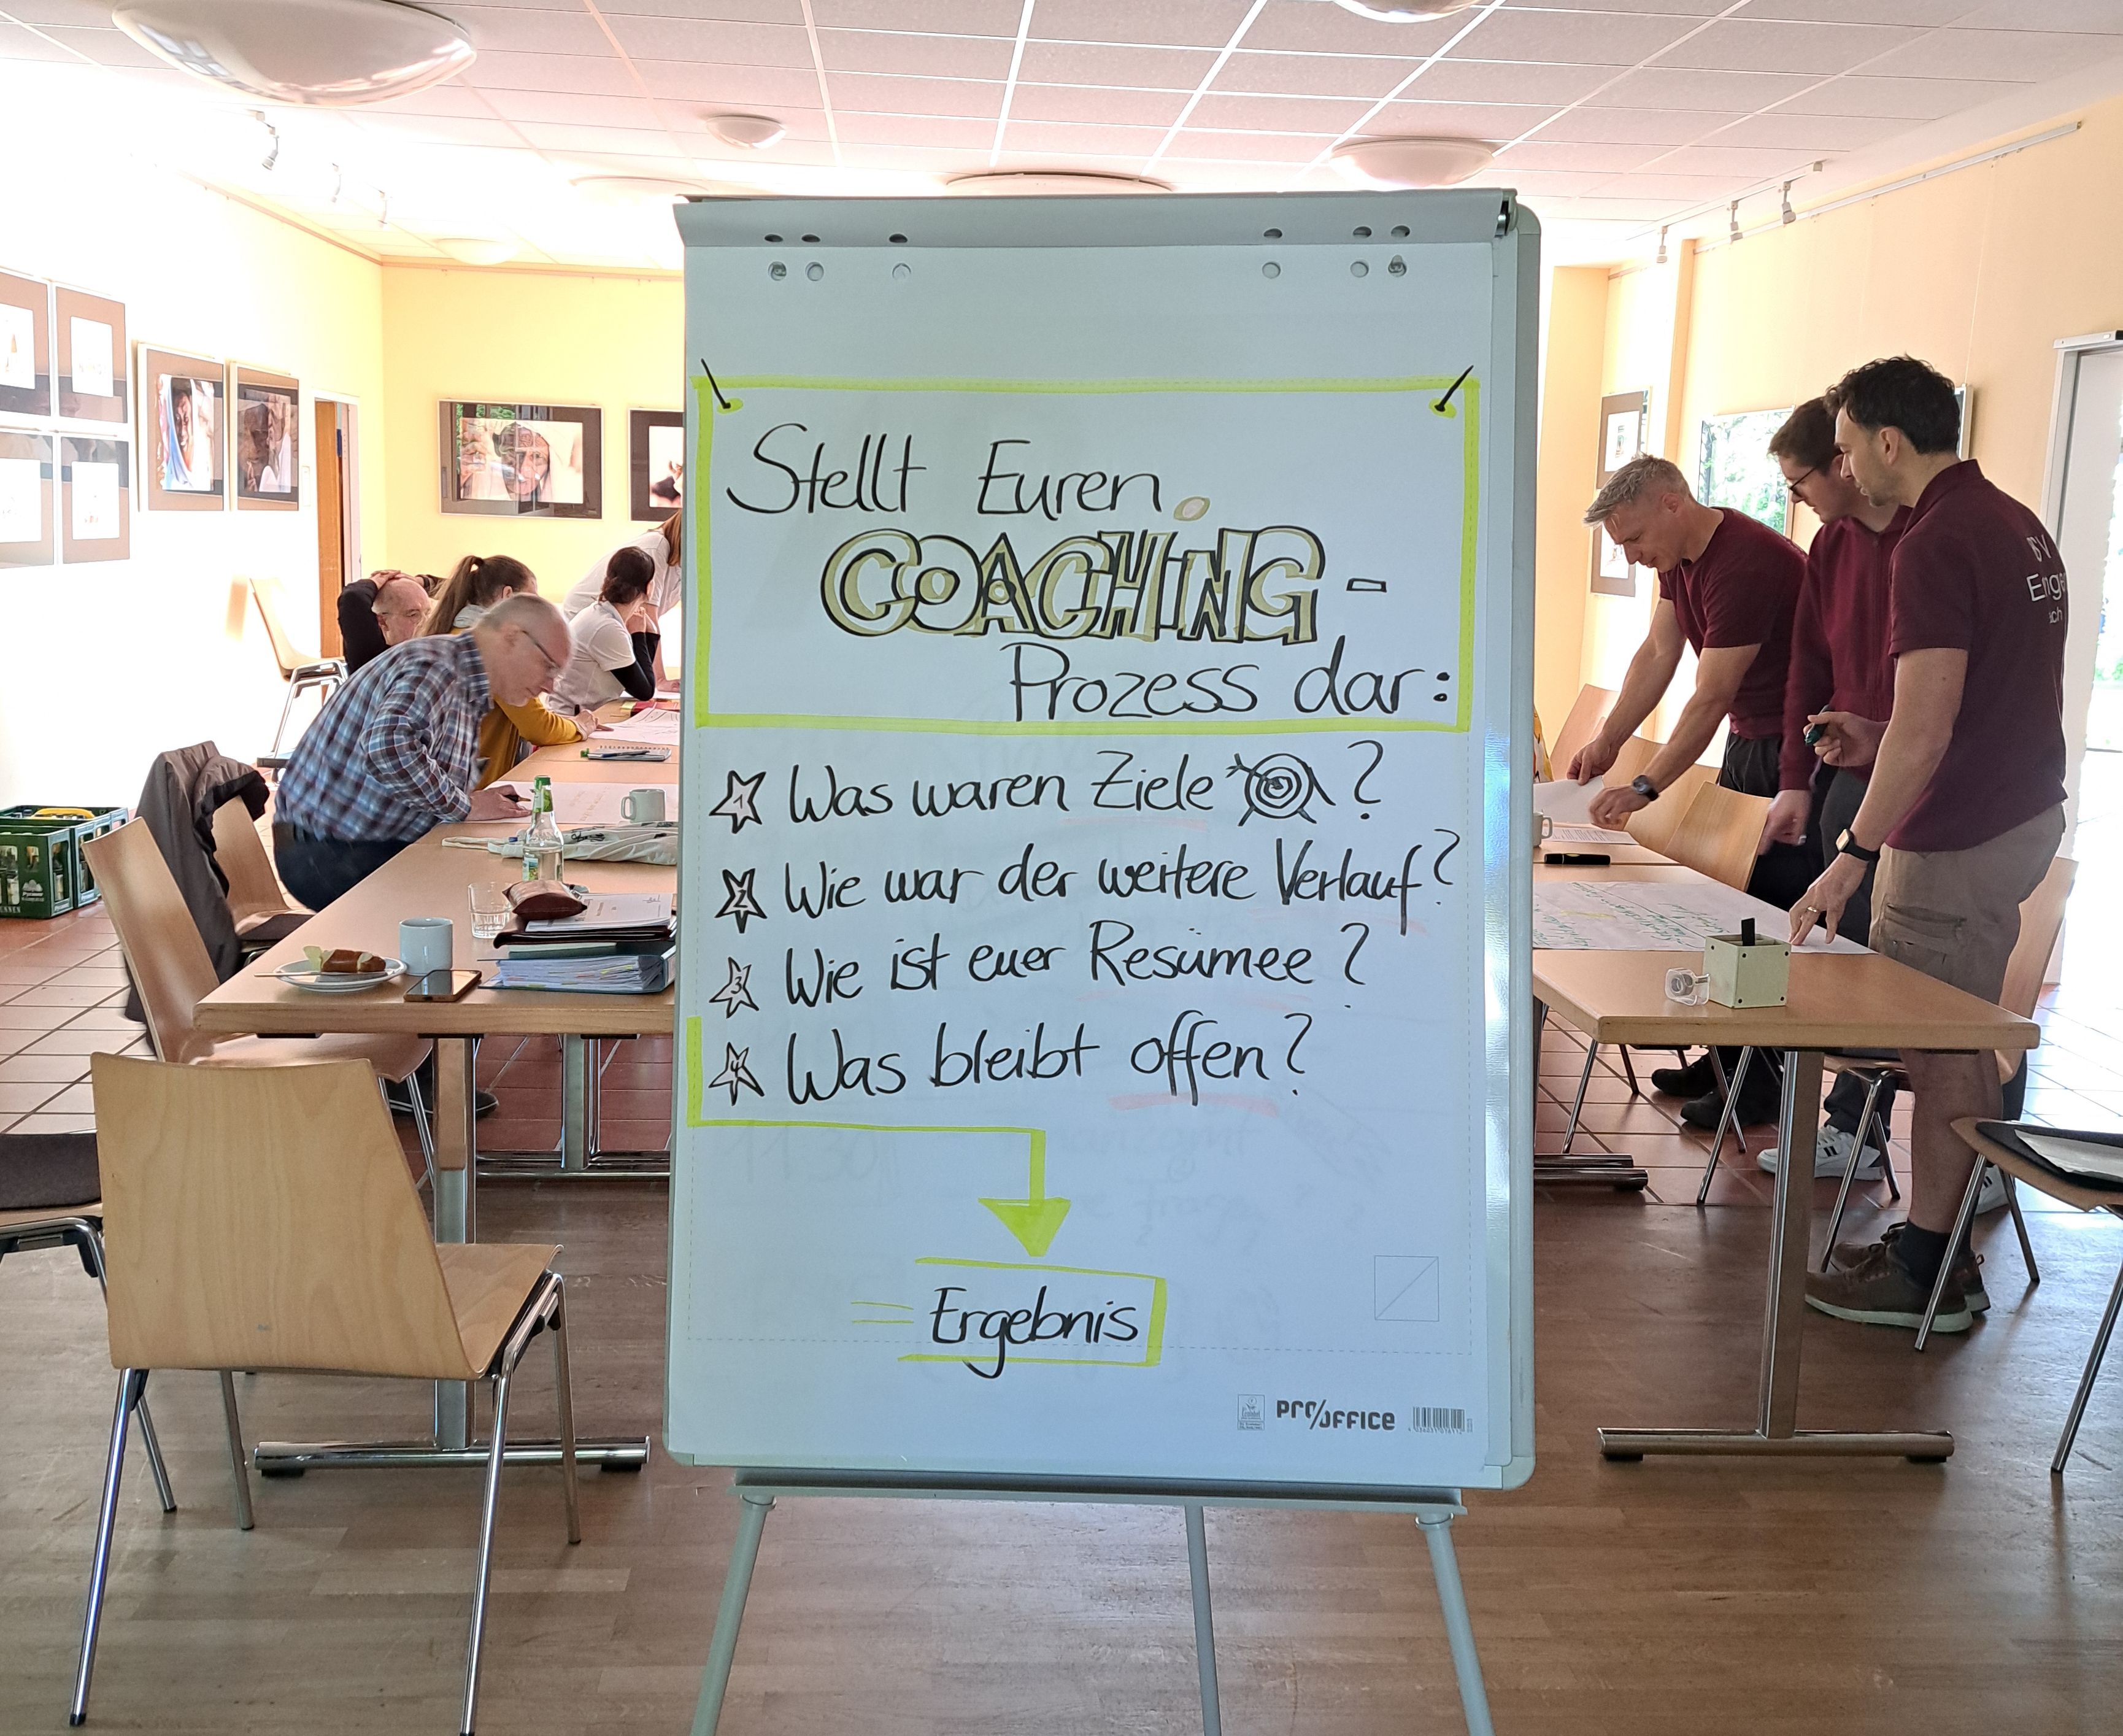 Stellt Euren
COACHING-
Prozess dar:
1 Was waren Ziele ?
2 Wie war der weitere Verlauf?
3 Wie ist euer Resümee?
4 Was bleibt offen?
Ergebnis
PRO/OFFICE